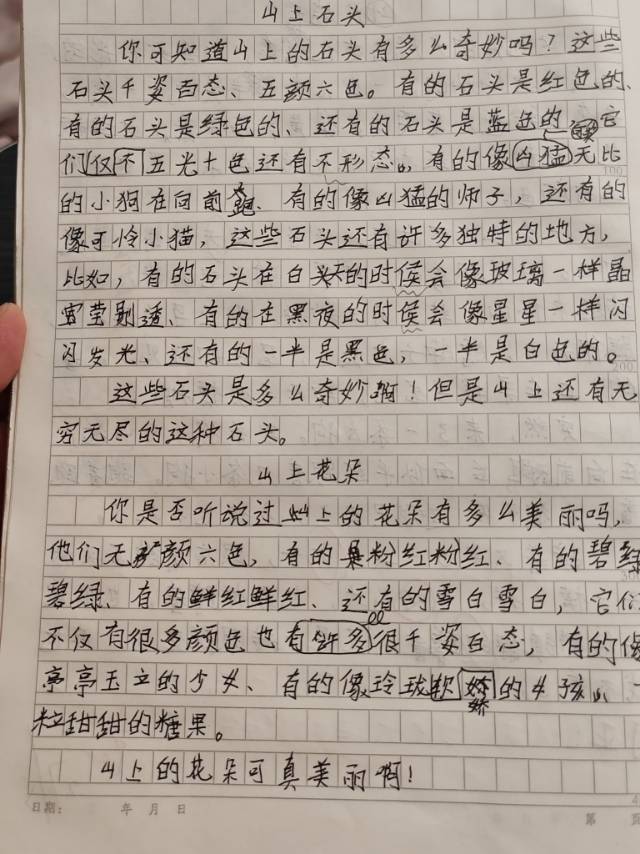 山上石头
你可知道山上的石头有多么奇妙吗？这些
石头千姿百态、五颜六色。有的石头是红色的、
有的石头是绿色的、还有的石头是蓝色的，它
们仅不五光十色还有不形态。有的像凶猛无比
的小狗在向前跑、有的像凶猛的师子，还有的
像可怜小猫，这些石头还有许多独特的地方，
比如，有的石头在白天的时侯会像玻璃一样晶
莹剔透、有的在黑夜的时侯会像星星一样闪
闪发光、还有的一半是黑色，一半是白色的。
这些石头是多么奇妙啊！但是山上还有无
穷无尽的这种石头。
山上花朵
你是否听说过山上的花朵有多么美丽吗，
他们无颜六色，有的是粉红粉红、有的碧绿
碧绿、有的鲜红鲜红、还有的雪白雪白，它们
不仅有很多颜色也有许多很千姿百态，有的像
亭亭玉立的少女、有的像玲珑软娇的女孩、一
粒甜甜的糖果。
山上的花朵可真美丽啊！
日期： 年 月 日
第 页